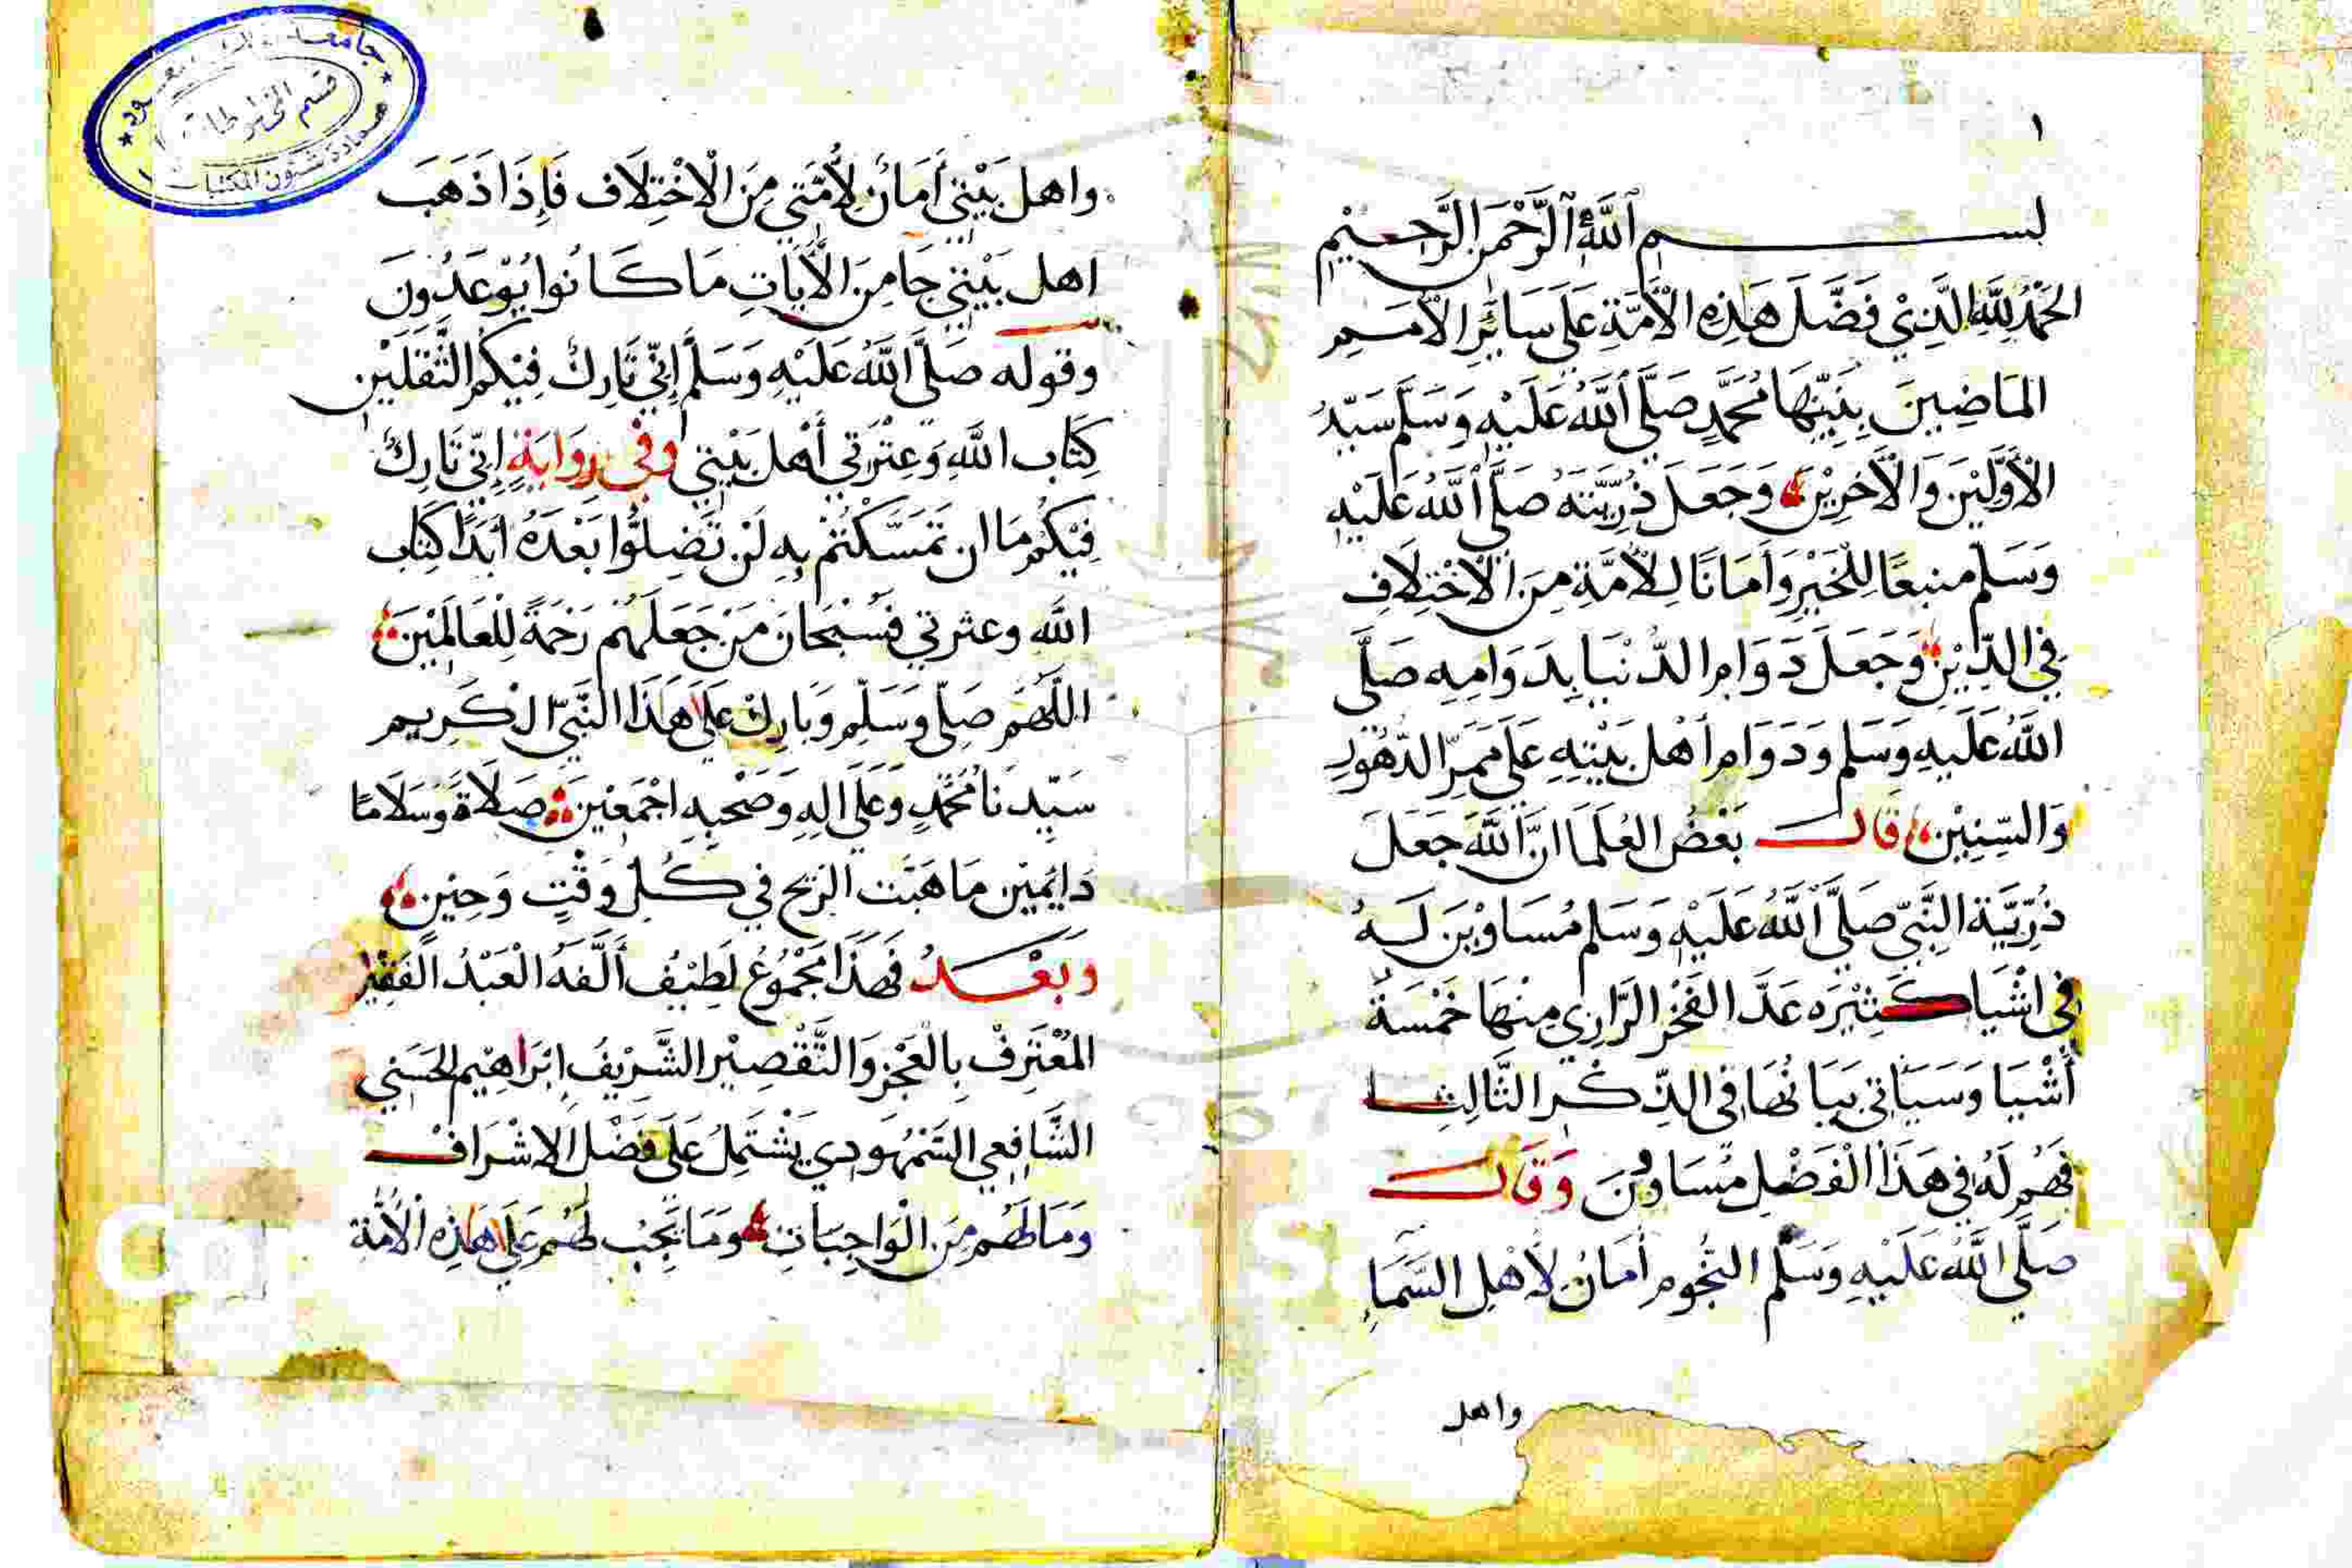 ١
بســـم ٱللَّهِ ٱلرَّحْمَنِ الرَّحِيْمِ
الحَمْدُ لِلَّهِ الَّذِيْ فَضَّلَ هَذِهِ الْأُمَّةِ عَلَى سَائِرِ الْأُمَمِ
المَاضِيينَ بِنَبِيِّهَا مُحَمَّدٍ صَلَّى ٱللَّهُ عَلَيْهِ وَسَلَّمَ سَيِّدُ
الْأَوَّلِيْنَ وَالْآخِرِيْنَ وَجَعَلَ ذُرِّيَّتَهُ صَلَّى ٱللَّهُ عَلَيْهِ
وَسَلَّمَ منبعًا لِلْخَيْرِ وَأَمَانًا لِلْأُمَّةِ مِنَ الْاخْتِلَافِ
فِي الدِّيْنِ وَجَعَلَ دَوَامِ الدُّنْيَا بِدَوَامِهِ صَلَّى
اللَّهُ عَلَيهِ وَسَلَّمَ وَدَوَامِ أَهْلِ بَيْتِهِ عَلَى مَمَرِّ الدُّهُوْرِ
وَالسِّنِيْنَ قالـــ بَعْضُ العُلَمَا انَّ اللَّهَ جَعَلَ
ذُرِّيَّةِ النَّبِيِّ صَلَّى اللَّهُ عَلَيْهِ وَسَلَّمَ مُسَاوِيْنَ لَــهُ
فِي اشْيَا كَثِيْرَه عَدَّ الفَخْرُ الرَّازِيْ مِنْهَا خَمْسَةُ
أَشْيَا وَسَيَأتِي بَيَانُهَا فِي الذِّكْرِ الثَّالِثِ
فَهُمْ لَهُ فِي هَذَا الْفَضْلِ مُسَاوُنَ وَقَالـــ
صَلَّى اللَّهُ عَلَيْهِ وَسَلَّم النُّجُومِ أَمَانٌ لِأَهْلِ السَّمَاءِ
واهل
واهل بَيْتِي أَمَانٌ لِأُمَّتِي مِنَ الْاخْتِلَاف فَإِذَا ذَهَبَ
اهل بَيْتِي جَا مِنَ الْآيَاتِ مَا كَانُوا يُوْعَدُونَ
وقوله صَلَّى اللَّهُ عَلَيْهِ وَسَلَّمَ إِنِّي تَارِكٌ فِيْكُمُ الثَّقَلَيْنِ
كِتَاب اللَّهِ وَعِتْرَتِي أَهْلَ بَيْتِي وفي رِوَايَةٍ إِنِّي تَارِكٌ
فِيْكُمْ مَا ان تَمَسَّكْتُمْ بِهِ لَنْ تَضِلُّوا بَعْدَهُ أَبَدًا كِتَابَ
اللَّه وعثرتي فَسُبْحَانَ مَنْ جَعَلَهُمْ رَحْمَةً لِلْعَالَمِيْنَ
اللَّهُمَّ صَلِّ وَسَلِّمْ وَبَارِكْ عَلَى هَذَا النَّبِيِّ الْكَرِيمِ
سَيِّدِنَا مُحَمَّدٍ وَعَلَى الِهِ وَصَحْبِهِ اجْمَعِيْنَ صَلَاةً وَسَلَامًا
دَايِمَيْنِ مَا هَبَّت الرِّيح في كُلِّ وَقْتٍ وَحِيْنٍ
وَبَعْــدُ فَهَذَا مَجْمُوْعٌ لَطِيْفٌ أَلَّفَهُ الْعَبْدُ الْفَقِيْر
المُعْتَرِفْ بِالْعَجْزِ وَالتَّقْصِيْرِ الشَّرِيْفُ إِبْرَاهِيْم الحَسَنِي
الشَّافِعِي السَّمْهُودِي يَشْتَمِلُ عَلَى فَضْلِ الاشْرَافْ
وَمَا لَهُم مِنَ الْوَاجِبَاتِ وَمَا يَجِبُ لَهُم عَلَى هَذِهِ الْأُمَّة
قسم المخطوطات
عمادة شئون المكتبات